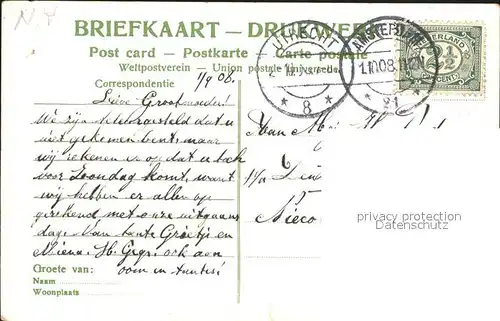 NY
BRIEFKAART — DRUKWERK
Post card — Postkarte — Carte postale
Weltpostverein — Union postale universelle
Correspondentie
1/9 08.
UTRECHT
8
AMSTERDAM
1.10.08
21
NEDERLAND
2½
CENT
Lieve Grootmoeder!
We zijn teleurgesteld dat u
niet gekomen bent, maar
wij rekenen er op dat u toch
voor Zondag komt, want
wij hebben er allen op
gerekend, met onze uitgaans
dag. Van tante Grietje en
Miena. H. Gegr. ook aan
oom en tantes!
Aan
privacy protection
Datenschutz
Groete van:
Naam
Woonplaats